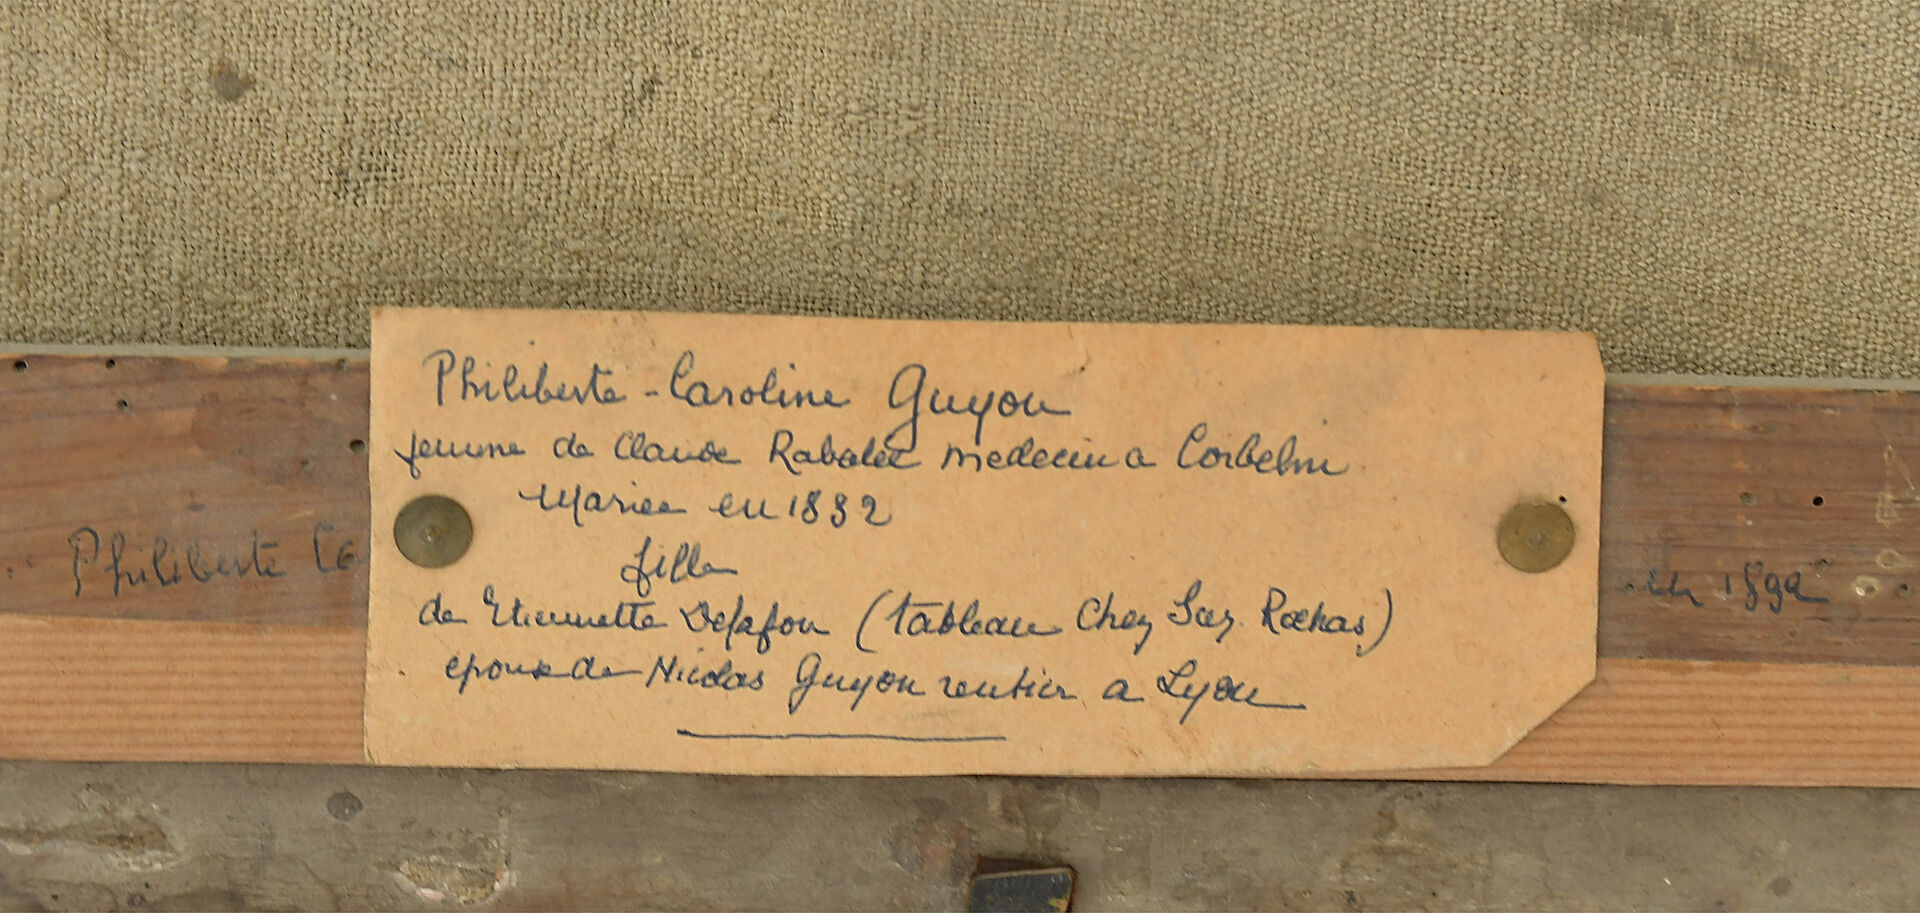 Philiberte - Caroline Guyon
femme de Claude Rabatel medecin a Corbelin
Mariee en 1832
fille
de Etiennette Delafon (tableau Chez Rochas)
epouse de Nicolas Guyon rentier a Lyon
Philiberte Ca
en 1832